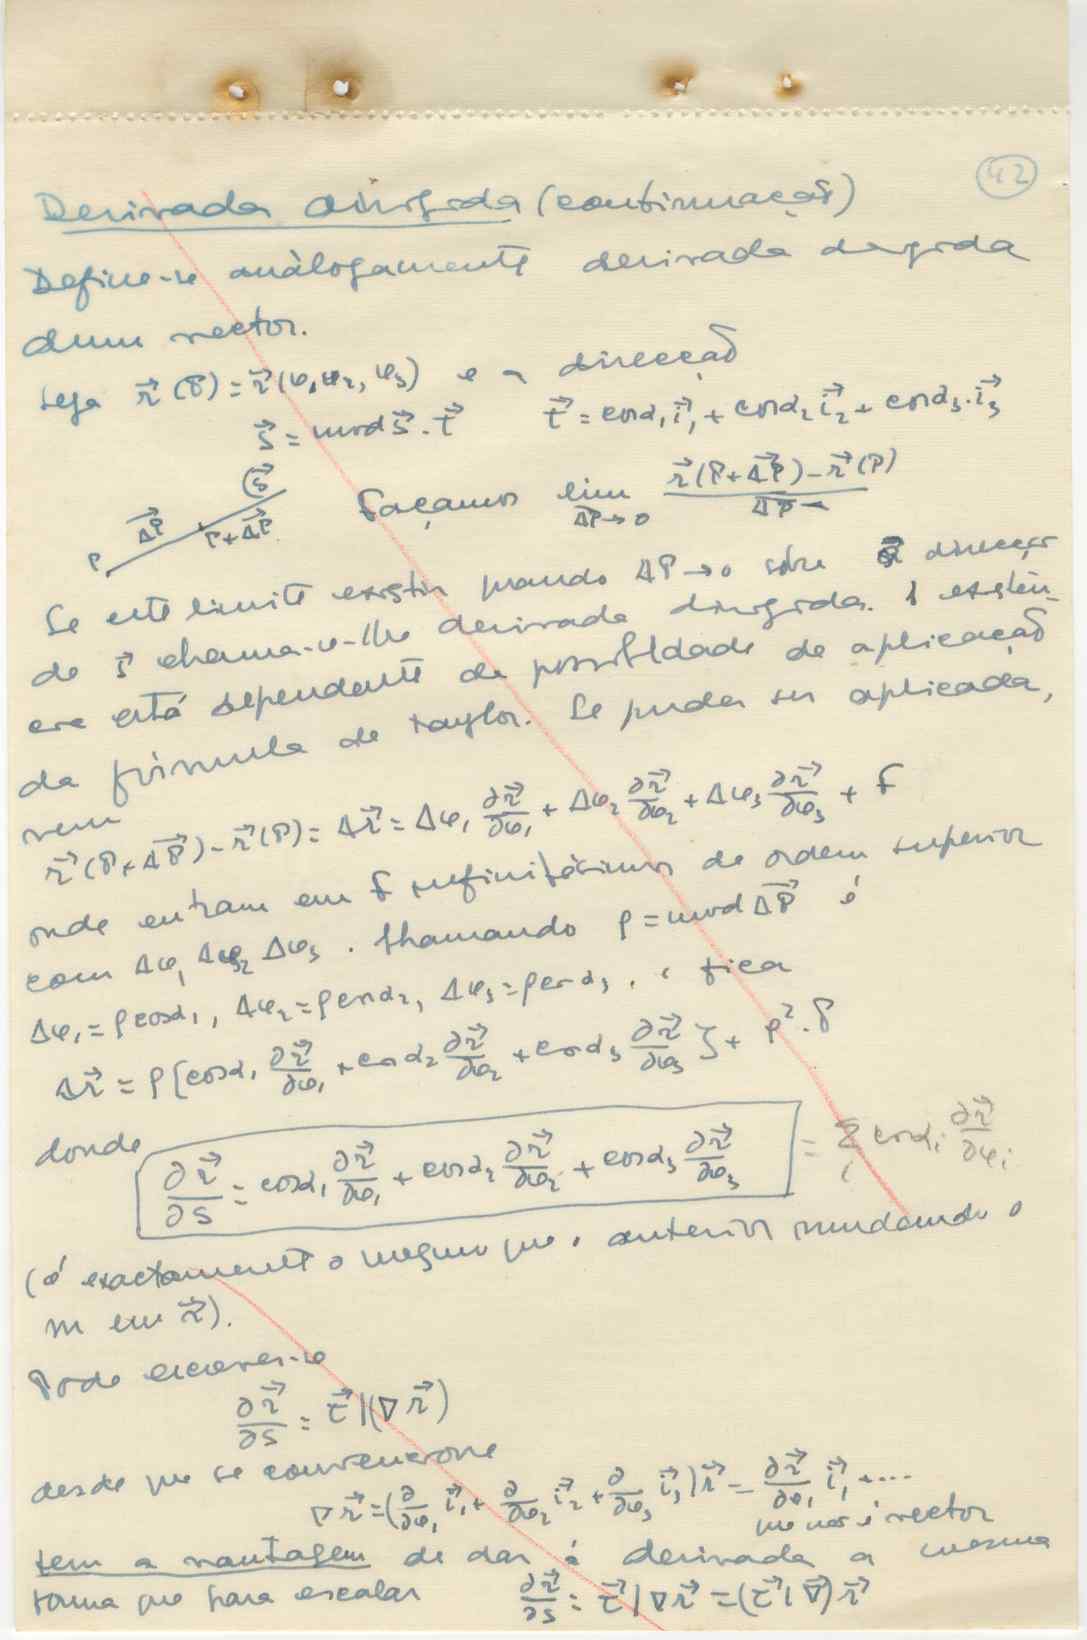 42
Derivada dirigida (continuação)
Define-se anàlogamente derivada dirigida
dum vector.
Seja r⃗ (P) = r⃗ (φ₁, φ₂, φ₃) e a direcção
s⃗ = mod s⃗ . t⃗    t⃗ = cosα₁ i⃗₁ + cosα₂ i⃗₂ + cosα₃ . i⃗₃
(s⃗
P  ΔP⃗  P+ΔP⃗
Façamos lim_{ΔP→0} (r⃗ (P+ΔP⃗) – r⃗ (P)) / ΔP
Se este limite existir quando ΔP → 0 sôbre a direcção
de s⃗ chama-se-lhe derivada dirigida. A existên-
cia está dependente da possibilidade de aplicação
da fórmula de Taylor. Se puder ser aplicada,
vem
r⃗ (P+ΔP⃗) – r⃗ (P) = Δr⃗ = Δφ₁ ∂r⃗/∂φ₁ + Δφ₂ ∂r⃗/∂φ₂ + Δφ₃ ∂r⃗/∂φ₃ + f
onde entram em f infinitésimos de ordem superior
com Δφ₁ Δφ₂ Δφ₃ . Chamando ρ = mod ΔP⃗ é
Δφ₁ = ρ cosα₁, Δφ₂ = ρ cosα₂, Δφ₃ = ρ cosα₃ . e fica
Δr⃗ = ρ {cosα₁ ∂r⃗/∂φ₁ + cosα₂ ∂r⃗/∂φ₂ + cosα₃ ∂r⃗/∂φ₃ } + ρ² . δ
donde
∂r⃗/∂s = cosα₁ ∂r⃗/∂φ₁ + cosα₂ ∂r⃗/∂φ₂ + cosα₃ ∂r⃗/∂φ₃ = Σᵢ cosαᵢ ∂r⃗/∂φᵢ
(é exactamente o mesmo que o anterior mudando o
m em r⃗).
Pode escrever-se
∂r⃗/∂s = t⃗ | (∇ r⃗)
desde que se convencione
∇ r⃗ = (∂/∂φ₁ i⃗₁ + ∂/∂φ₂ i⃗₂ + ∂/∂φ₃ i⃗₃) r⃗ = ∂r⃗/∂φ₁ i⃗₁ + ....
que não é vector
tem a vantagem de dar à derivada a mesma
forma que para escalar    ∂r⃗/∂s = t⃗ | ∇ r⃗ = (t⃗ | ∇⃗) r⃗